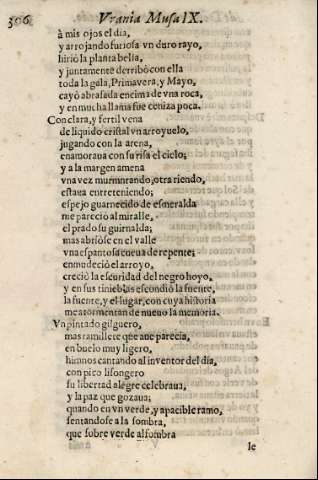 306
Vrania Musa IX.
à mis ojos el dia,
y arrojando furiosa vn duro rayo,
hirió la planta bella,
y juntamente derribò con ella
toda la gala, Primavera, y Mayo,
cayò abrasada encima de vna roca,
y en mucha llama fue ceniza poca.
Con clara, y fertil vena
de liquido cristal vn arroyuelo,
jugando con la arena,
enamoraua con su risa el cielo;
y a la margen amena
vna vez murmurando, otra riendo,
estaua entreteniendo;
espejo guarnecido de esmeralda
me pareciò al miralle,
el prado su guirnalda;
mas abriòse en el valle
vna espantosa cueua de repente;
enmudeciò el arroyo,
creciò la escuridad del negro hoyo,
y en sus tinieblas escondiò la fuente,
la fuente, y el lugar, con cuya historia
me atormentan de nueuo la memoria.
Vn pintado gilguero,
mas ramillete que aue parecia,
en buelo muy ligero,
himnos cantando al inventor del dia,
con pico lisongero
su libertad alegre celebraua,
y la paz que gozaua;
quando en vn verde, y apacible ramo,
sentandose a la sombra,
que sobre verde alfombra
le